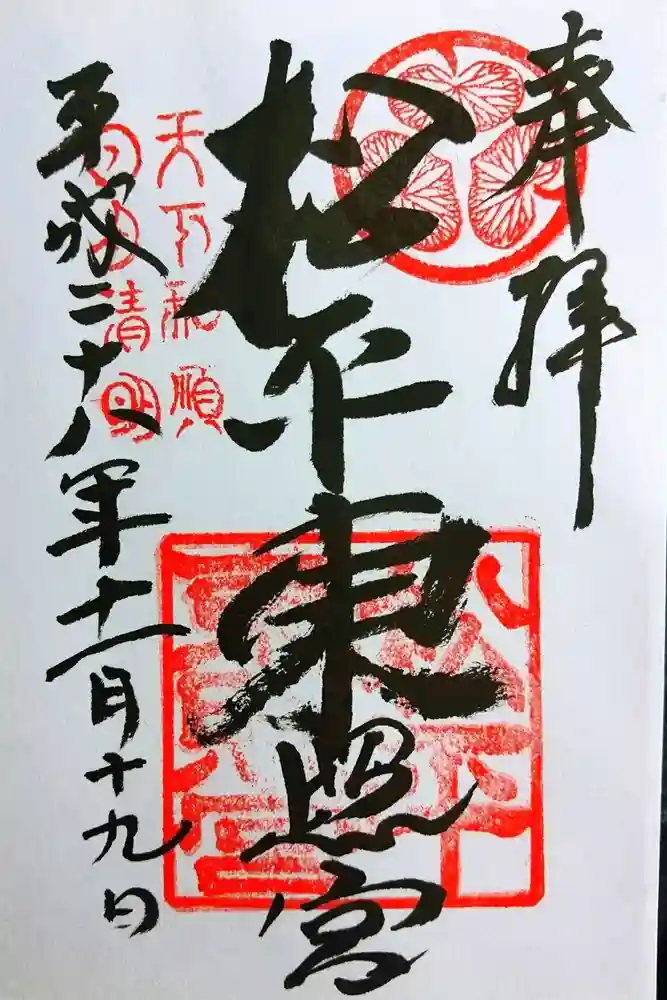 奉拝
松下東照宮
天下和順
日月清明
平成二十八年十一月十九日
松下
東照
宮